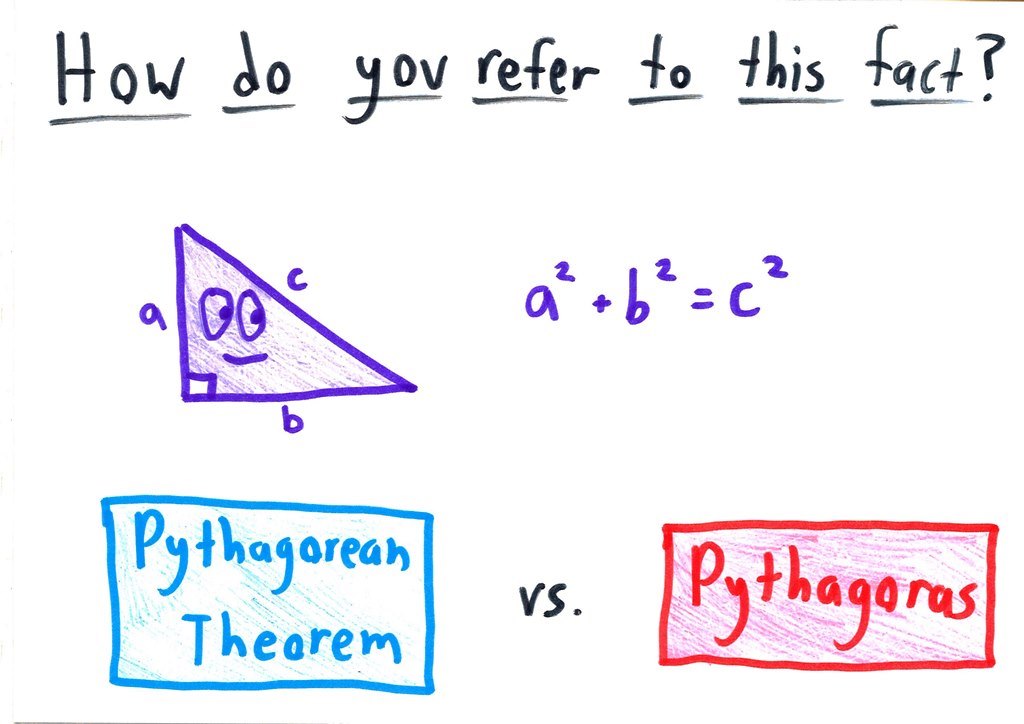 How do you refer to this fact?
c
a
b
a² + b² = c²
Pythagorean
Theorem
vs.
Pythagoras